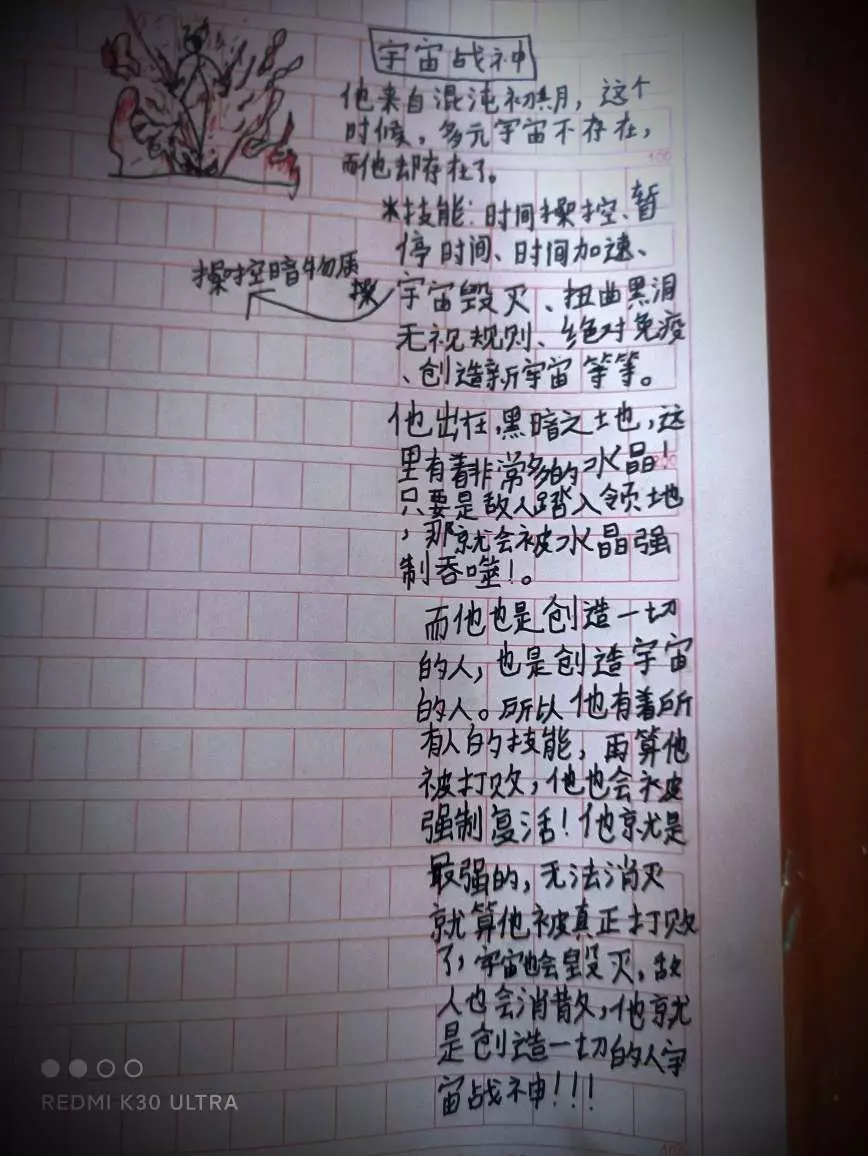 宇宙战神
他来自混沌初期，这个
时候，多元宇宙不存在，
而他却存在了。
*技能：时间操控、暂
停时间、时间加速、
操控暗物质
宇宙毁灭、扭曲黑洞
无视规则、绝对免疫
、创造新宇宙等等。
他出在，黑暗之土地，这
里有着非常多的水晶！
只要是敌人踏入领地
，那就会被水晶强
制吞噬！。
而他也是创造一切
的人，也是创造宇宙
的人。所以他有着所
有人的技能，再算他
被打败，他也会被
强制复活！他就是
最强的，无法消灭
就算他被真正打败
了，宇宙也会毁灭，敌
人也会消散，他就
是创造一切的人宇
宙战神！！！
REDMI K30 ULTRA